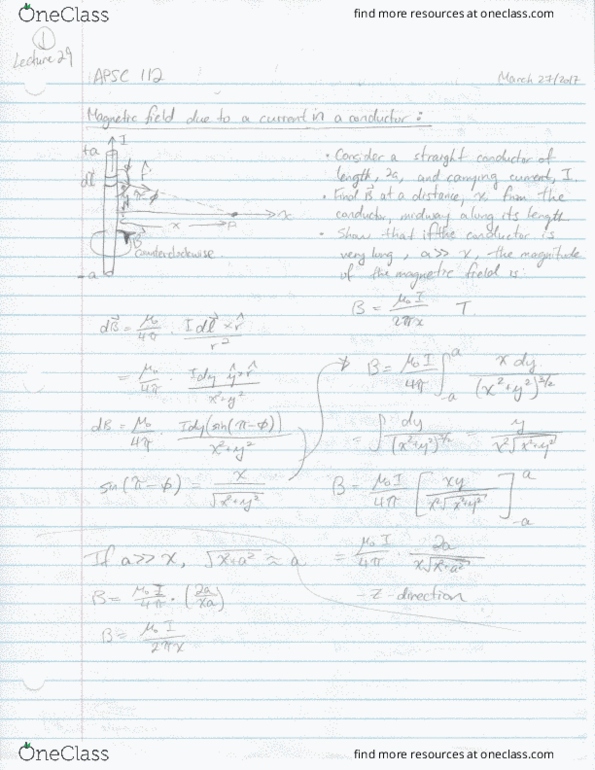 OneClass
find more resources at oneclass.com
1
Lecture 29
APSC 112
March 27/2017
Magnetic field due to a current in a conductor:
+a
I
dl
r̂
ϕ
x
x
P
B
counterclockwise.
-a
• Consider a straight conductor of
length, 2a, and carrying current, I.
• Find B⃗ at a distance, x, from the
conductor, midway along its length
• Show that if the conductor is
very long, a>>x, the magnitude
of the magnetic field is:
B = μ₀I / 2πx T
dB⃗ = μ₀/4π · I dl⃗ × r̂ / r²
= μ₀/4π · I dy ŷ × r̂ / x²+y²
dB = μ₀/4π · I dy (sin(π-ϕ)) / x²+y²
sin(π-ϕ) = x / √(x²+y²)
B = μ₀I/4π ∫₋ₐᵃ x dy / (x²+y²)^3/2
= ∫ dy / (x²+y²)^3/2 = y / x²√(x²+y²)
B = μ₀I/4π [ xy / x²√(x²+y²) ]₋ₐᵃ
= μ₀I/4π · 2a / x√(x²+a²)
-z-direction
If a>>x, √(x²+a²) ≈ a
B = μ₀I/4π · (2a/xa)
B = μ₀I / 2πx
OneClass
find more resources at oneclass.com